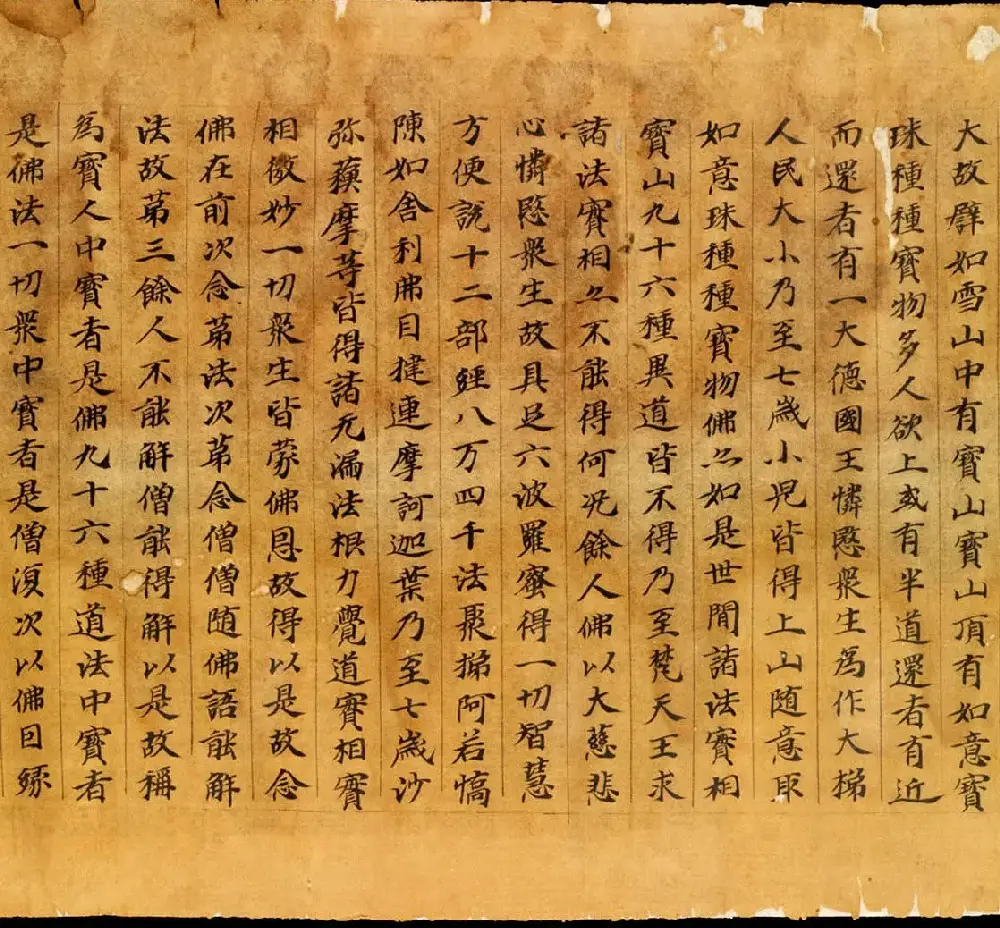 大故譬如雪山中有寶山寶山頂有如意寶
珠種種寶物多人欲上或有半道還者有近
而還者有一大德國王憐愍衆生為作大梯
人民大小乃至七歲小兒皆得上山随意取
如意珠種種寶物佛亦如是世間諸法實相
寶山九十六種異道皆不得乃至梵天王求
諸法實相亦不能得何況餘人佛以大慈悲
心憐愍衆生故具足六波羅蜜得一切智慧
方便說十二部經八万四千法聚梯阿若憍
陳如舍利弗目揵連摩訶迦葉乃至七歲沙
弥蘓摩等皆得諸无漏法根力覺道實相實
相微妙一切衆生皆蒙佛恩故得以是故念
佛在前次念第法次第念僧僧随佛語能解
法故第三餘人不能解僧能得解以是故稱
為寶人中寶者是佛九十六種道法中寶者
是佛法一切衆中寶者是僧復次以佛因緣